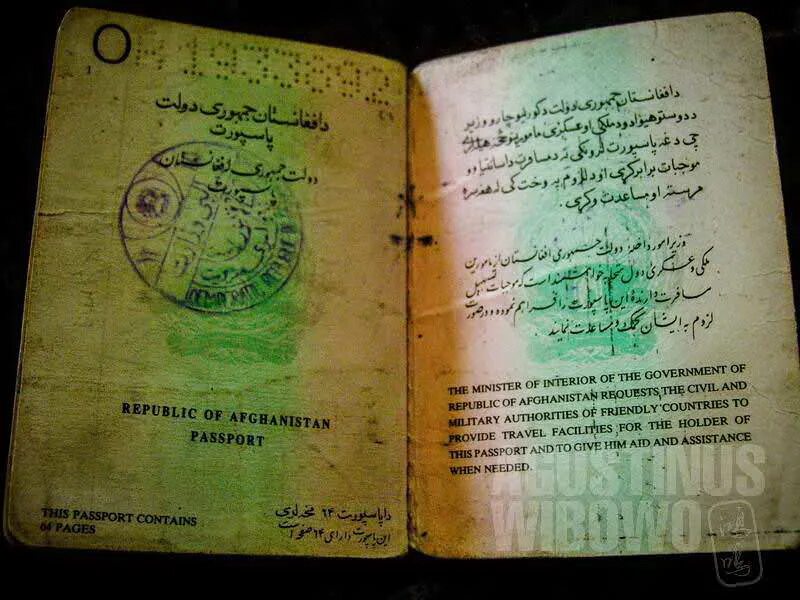 OR 1933892
1
د افغانستان جمهوری دولت
پاسپورت
دولت جمهوری افغانستان
پاسپورت
DEMOCRATIC REPUBLIC OF
REPUBLIC OF AFGHANISTAN
PASSPORT
THIS PASSPORT CONTAINS
64 PAGES
دا پاسپورت ۶۴ مخه لری
این پاسپورت دارای ۶۴ صفحه است
د افغانستان جمهوری دولت د کورنیو چارو وزیر
د دوستو هیوادو د ملکی او عسکری مامورینو څخه هیله
چی د غه پاسپورت لرونکی ته د مسافرت د اسانتیا وو
موجبات برابر کړی او د لزوم په وخت کی له هغه سره
مرسته او مساعدت وکړی.
وزیر امور داخله دولت جمهوری افغانستان از مامورین
ملکی و عسکری دول متحابه خواهشمند است که موجبات تسهیل
مسافرت دارندهٔ این پاسپورت را فراهم نموده و در صورت
لزوم به ایشان کمک و مساعدت نمایند.
THE MINISTER OF INTERIOR OF THE GOVERNMENT OF
REPUBLIC OF AFGHANISTAN REQUESTS THE CIVIL AND
MILITARY AUTHORITIES OF FRIENDLY COUNTRIES TO
PROVIDE TRAVEL FACILITIES FOR THE HOLDER OF
THIS PASSPORT AND TO GIVE HIM AID AND ASSISTANCE
WHEN NEEDED.
AGUSTINUS
WIBOWO